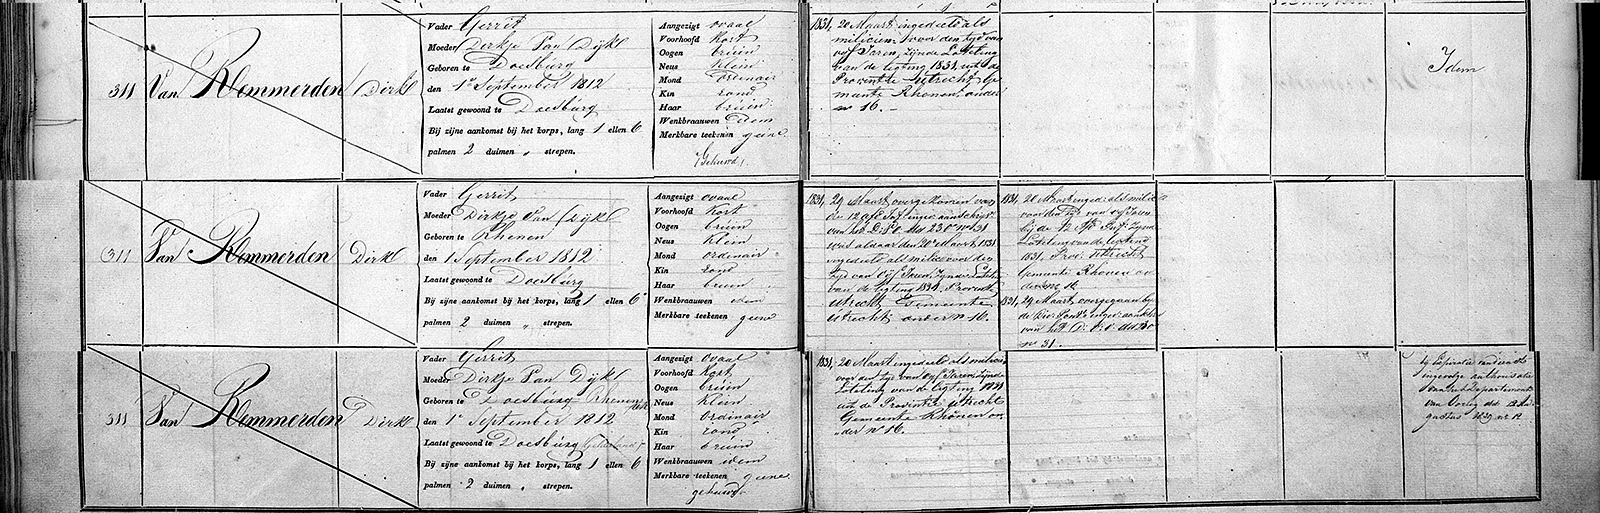 311 Van Remmerden Dirk
Vader Gerrit
Moeder Dirkje Van Dijk
Geboren te Doesburg
den 1e September 1812
Laatst gewoond te Doesburg
Bij zijne aankomst bij het korps, lang 1 ellen 6
palmen 2 duimen „ strepen.
Aangezigt ovaal
Voorhoofd Kort
Oogen bruin
Neus klein
Mond Ordinair
Kin rond
Haar bruin
Wenkbraauwen Idem
Merkbare teekenen geene
Gehuwd
1831, 20 Maart ingedeeld als
milicien voor den tijd van
vijf Jaren, zijnde Loteling
van de ligting 1831, uit de
Provintie Utrecht Ge
meente Rhenen onder
no 16.
Idem
311 Van Remmerden Dirk
Vader Gerrit
Moeder Dirkje Van Dijk
Geboren te Rhenen
den 1 September 1812
Laatst gewoond te Doesburg
Bij zijne aankomst bij het korps, lang 1 ellen 6
palmen 2 duimen „ strepen.
Aangezigt ovaal
Voorhoofd Kort
Oogen bruin
Neus Klein
Mond ordinair
Kin rond
Haar bruin
Wenkbraauwen idem
Merkbare teekenen geene
1831, 29 Maart overgekomen van
de 12 afd.
van het D. v. O. des 23 no 31
was aldaar den 20e Maart 1831
ingedeeld als milicien voor den
tijd van vijf Jaren, zijnde Loteling
van de ligting 1831. Provintie
Utrecht, Gemeente
Utrecht onder no 16.
1831, 20 Maart ingedeeld als milicien
voor den tijd van vijf Jaren
bij de 12 afd. Inf. zijnde
Loteling van de ligting
1831. Prov. Utrecht
Gemeente Rhenen on
der no 16
1831, 29 Maart overgegaan bij
van het D. v. O. des
no 31.
311 Van Remmerden Dirk
Vader Gerrit
Moeder Dirkje Van Dijk
Geboren te Doesburg Rhenen
den 1e September 1812
Laatst gewoond te Doesburg Gelderland
Bij zijne aankomst bij het korps, lang 1 ellen 6
palmen 2 duimen „ strepen.
Aangezigt Ovaal
Voorhoofd Kort
Oogen bruin
Neus Klein
Mond Ordinair
Kin rond
Haar bruin
Wenkbraauwen idem
Merkbare teekenen geene
gehuwd
1831, 20 Maart ingedeeld als milicien
voor den tijd van vijf Jaren, zijnde
Loteling van de ligting 1831
uit de Provintie Utrecht
Gemeente Rhenen on
der no 16.
van het Departement
van Oorlog dd 12 Au
gustus